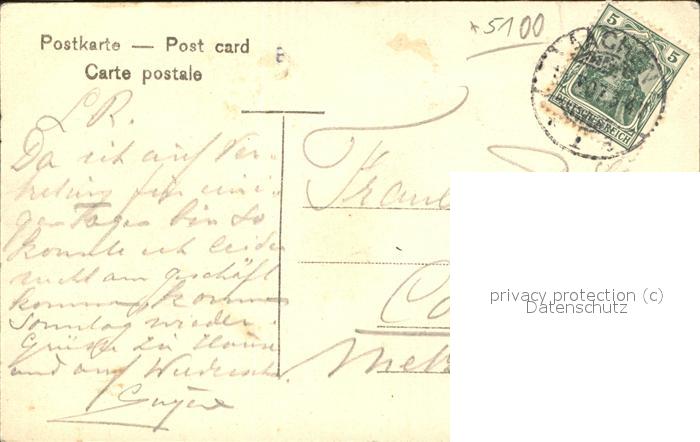 *5100
Postkarte — Post card
Carte postale
5
5
AACHEN
DEUTSCHES REICH
1
L. R.
Da ich auf Ver-
tretung für eini-
ge Tage bin so
konnte ich leider
nicht am geschäft
kommen, komme
Sonntag wieder.
Grüße zu Hause
und auf Wiederseh.
Frau
Co
Metz
privacy protection (c)
Datenschutz